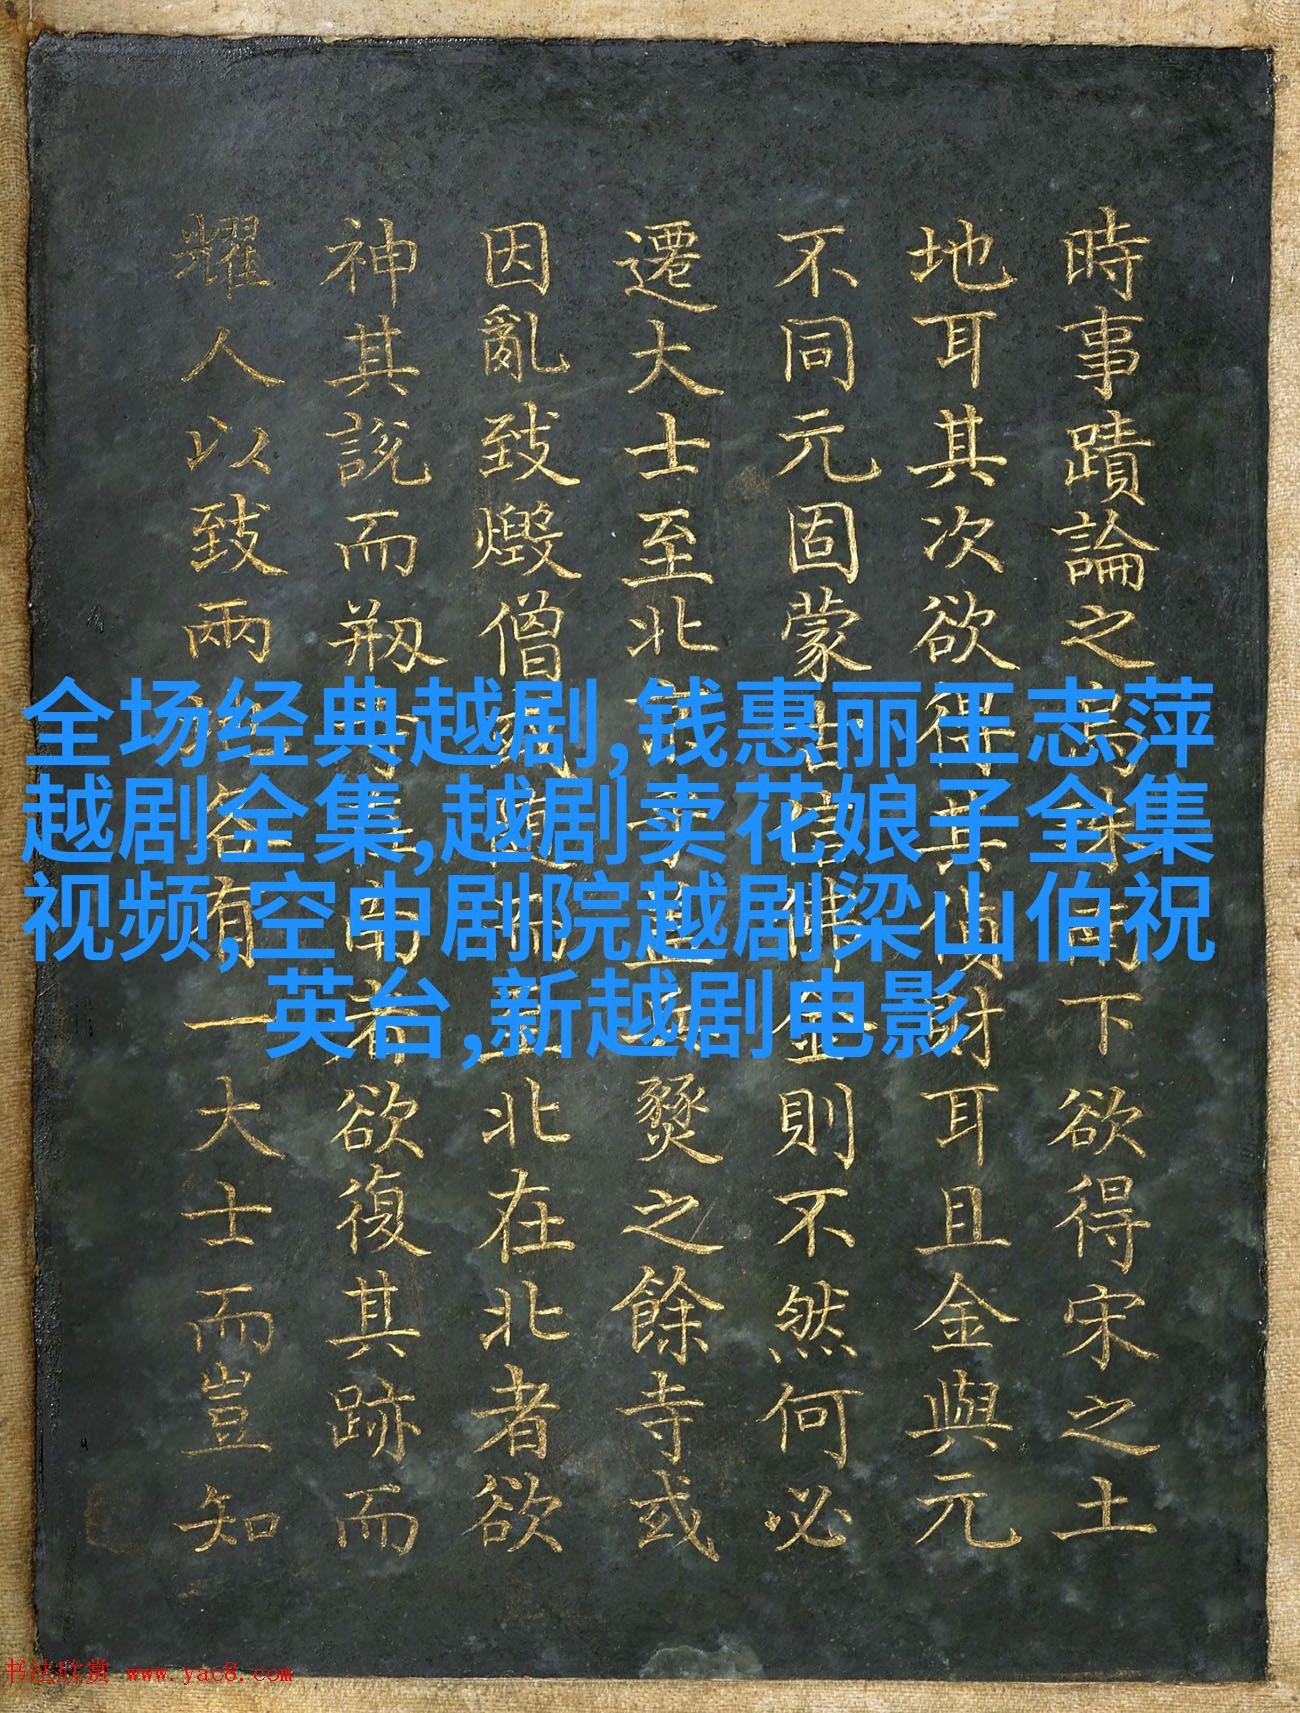 時事蹟論之下欲得宋之土
地耳其次欲得其財耳且金與元
不同元固蒙古信佛金則不然何必
遷大士至北燹之餘寺或
因亂致燬僧北在北者欲
神其說而剏南者欲復其跡而
耀人以致兩各有一大士而豈知
全场经典越剧,钱惠丽王志萍
越剧全集,越剧卖花娘子全集
视频,空中剧院越剧梁山伯祝
英台,新越剧电影
书法欣赏 www.yac8.com